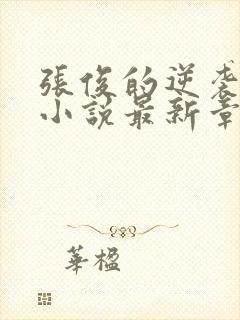 張俊的逆袭
小說最新章
華楹